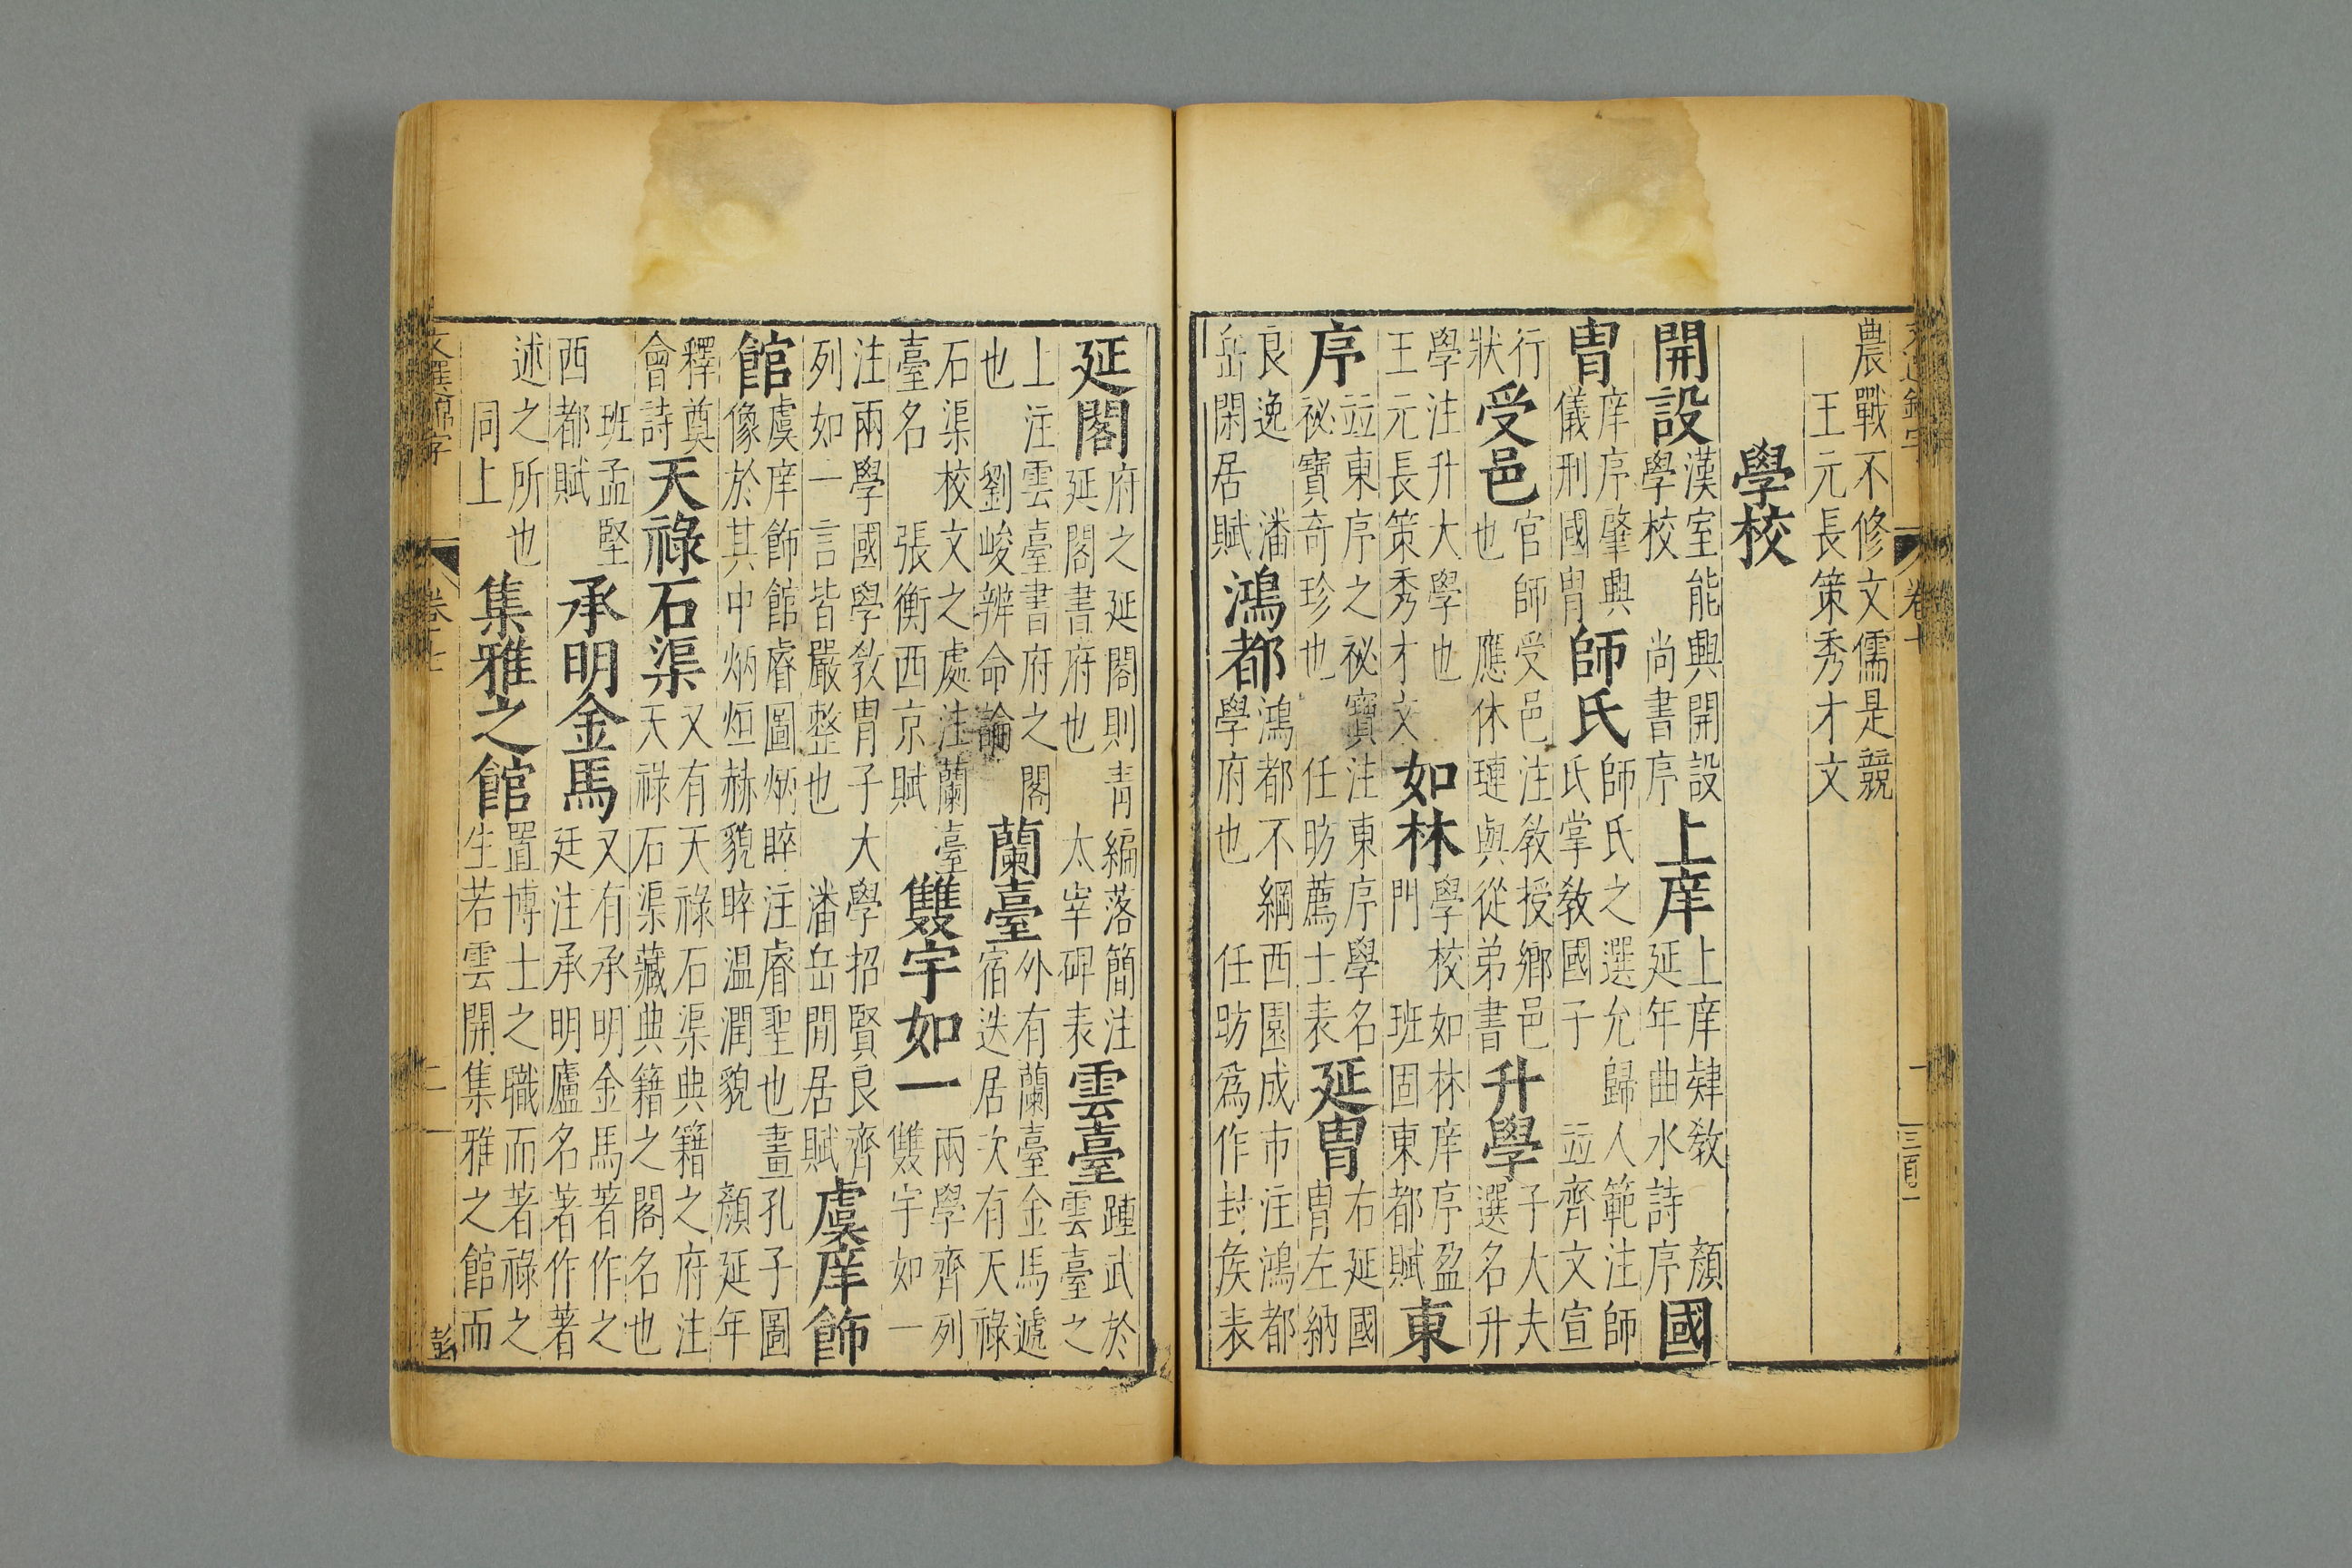 農戰不修文儒是競
王元長策秀才文
學校
開設漢室能興開設學校 尚書序上庠上庠肄教 顏延年曲水詩序國
胄庠序肇興儀刑國胄師氏師氏之選允歸人範注師氏掌教國子 竝齊文宣
行狀受邑官師受邑注教授鄉邑也 應休璉與從弟書升學子大夫選名升
學注升大學也 王元長策秀才文如林學校如林庠序盈門 班固東都賦東
序竝東序之祕寶注東序學名祕寶奇珍也 任昉薦士表延胄右延國胄左納
良逸 潘岳閑居賦鴻都鴻都不綱西園成市注鴻都學府也 任昉爲作封侯表
延閣府之延閣則青編落簡注延閣書府也 太宰碑表雲臺踵武於雲臺之
上注雲臺書府之閣也 劉峻辨命論蘭臺外有蘭臺金馬遞宿迭居次有天祿
石渠校文之處注蘭臺臺名 張衡西京賦雙宇如一兩學齊列雙宇如一
注兩學國學教胄子大學招賢良齊列如一言皆嚴整也 潘岳閒居賦虞庠飾
館虞庠飾館睿圖炳睟注睿聖也畫孔子圖像於其中炳烜赫貌睟温潤貌 顏延年
釋奠會詩天祿石渠又有天祿石渠典籍之府注天祿石渠藏典籍之閣名也
班孟堅西都賦承明金馬又有承明金馬著作之廷注承明廬名著作著
述之所也 同上集雅之館置博士之職而著祿之生若雲開集雅之館而
文選錦字
二
彭